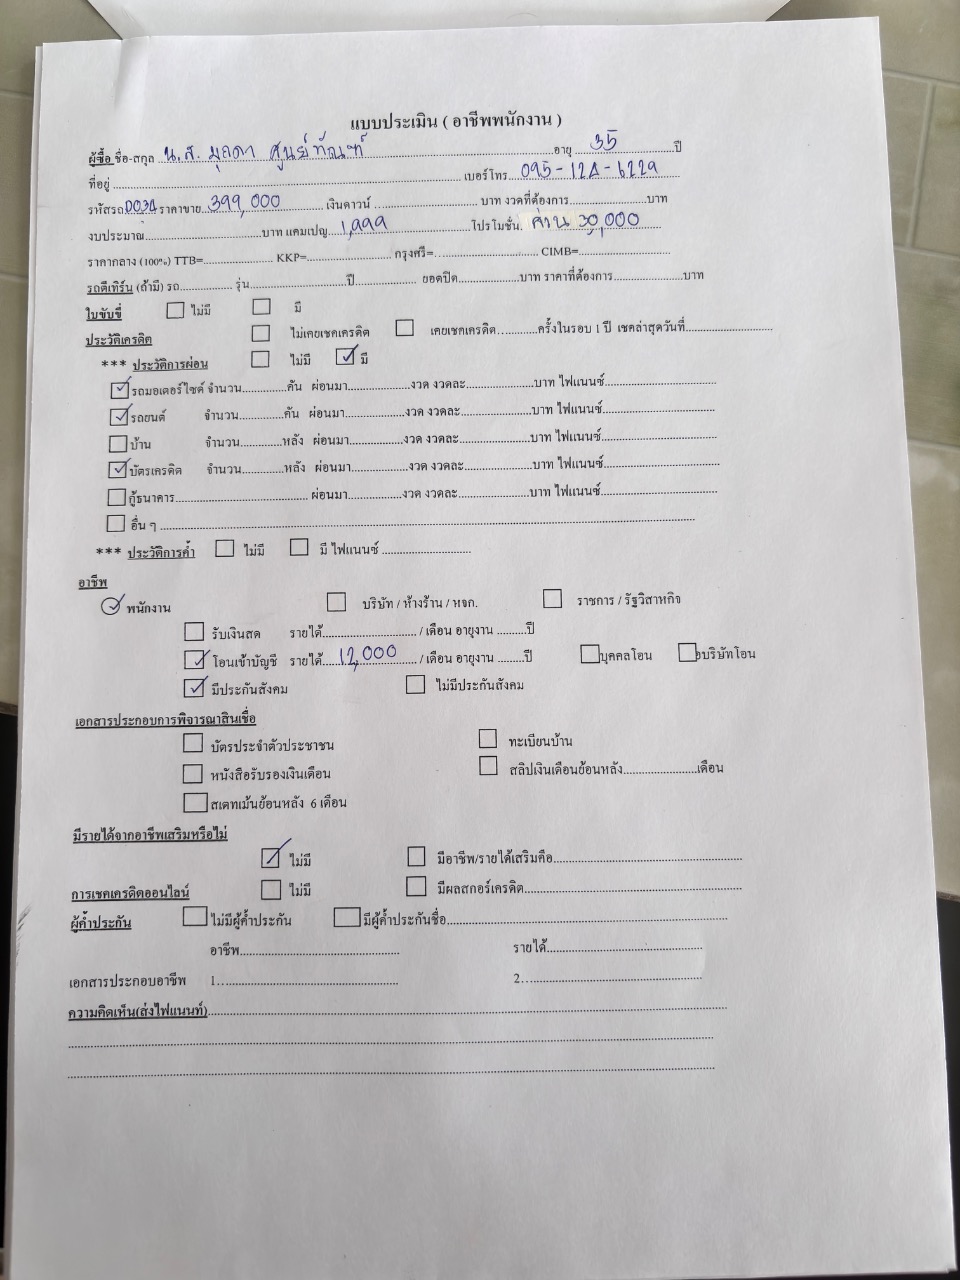 แบบประเมิน ( อาชีพพนักงาน )
ผู้ซื้อ ชื่อ-สกุล น.ส. มุกดา ศูนย์ทัณฑ์ อายุ 35 ปี
ที่อยู่ ........ เบอร์โทร 095-124-6229
รหัสรถ D034 ราคาขาย 399,000 เงินดาวน์ ........ บาท งวดที่ต้องการ........บาท
งบประมาณ........บาท แคมเปญ 1,999 โปรโมชั่น ส่วน 30,000
ราคากลาง (100%) TTB=........ KKP=........ กรุงศรี=........ CIMB=........
รถตีเทิร์น (ถ้ามี) รถ........ รุ่น........ปี........ ยอดปิด........บาท ราคาที่ต้องการ........บาท
ใบขับขี่ ☐ ไม่มี ☐ มี
ประวัติเครดิต ☐ ไม่เคยเชคเครดิต ☐ เคยเชคเครดิต........ครั้งในรอบ 1 ปี เชคล่าสุดวันที่........
*** ประวัติการผ่อน ☐ ไม่มี ☑ มี
☑ รถมอเตอร์ไซค์ จำนวน........คัน ผ่อนมา........งวด งวดละ........บาท ไฟแนนซ์........
☑ รถยนต์ จำนวน........คัน ผ่อนมา........งวด งวดละ........บาท ไฟแนนซ์........
☐ บ้าน จำนวน........หลัง ผ่อนมา........งวด งวดละ........บาท ไฟแนนซ์........
☑ บัตรเครดิต จำนวน........หลัง ผ่อนมา........งวด งวดละ........บาท ไฟแนนซ์........
☐ กู้ธนาคาร........ ผ่อนมา........งวด งวดละ........บาท ไฟแนนซ์........
☐ อื่น ๆ ........
*** ประวัติการค้ำ ☐ ไม่มี ☐ มี ไฟแนนซ์ ........
อาชีพ
☑ พนักงาน ☐ บริษัท / ห้างร้าน / หจก. ☐ ราชการ / รัฐวิสาหกิจ
☐ รับเงินสด รายได้........ / เดือน อายุงาน ........ปี
☑ โอนเข้าบัญชี รายได้ 12,000 / เดือน อายุงาน ........ปี ☐ บุคคลโอน ☐ บริษัทโอน
☑ มีประกันสังคม ☐ ไม่มีประกันสังคม
เอกสารประกอบการพิจารณาสินเชื่อ
☐ บัตรประจำตัวประชาชน ☐ ทะเบียนบ้าน
☐ หนังสือรับรองเงินเดือน ☐ สลิปเงินเดือนย้อนหลัง........เดือน
☐ สเตทเม้นย้อนหลัง 6 เดือน
มีรายได้จากอาชีพเสริมหรือไม่
☑ ไม่มี ☐ มีอาชีพ/รายได้เสริมคือ........
การเชคเครดิตออนไลน์ ☐ ไม่มี ☐ มีผลสกอร์เครดิต........
ผู้ค้ำประกัน ☐ ไม่มีผู้ค้ำประกัน ☐ มีผู้ค้ำประกันชื่อ........
อาชีพ........ รายได้........
เอกสารประกอบอาชีพ 1........ 2........
ความคิดเห็น(ส่งไฟแนนท์)........